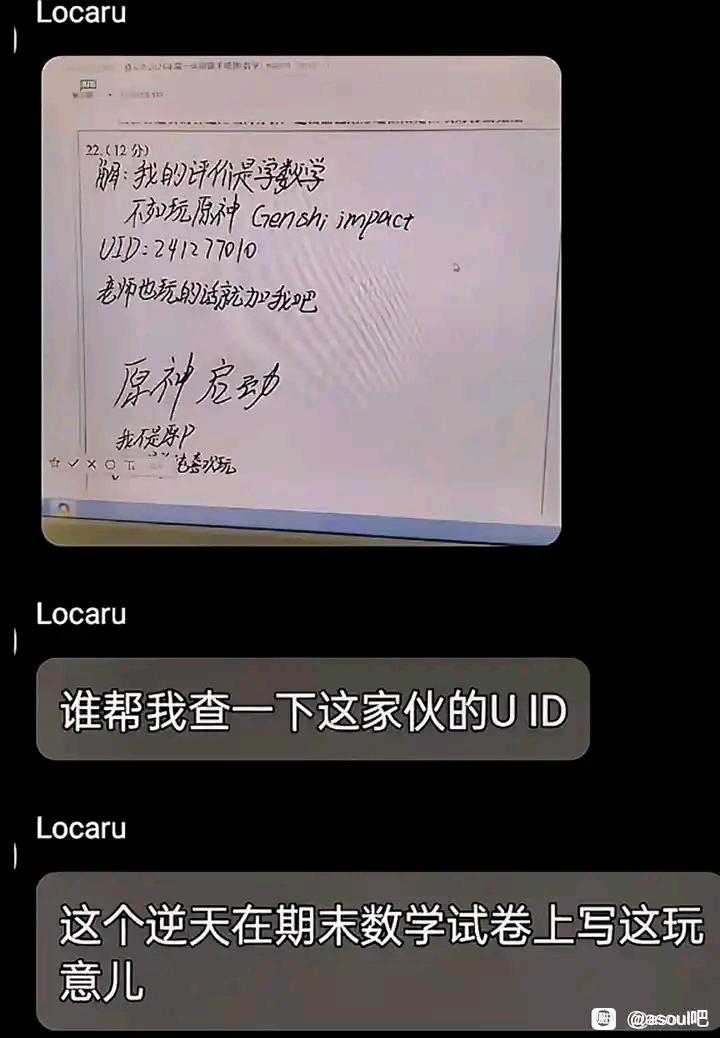 Locaru
22.(12分)
解:我的评价是学数学
不如玩原神 Genshi impact
UID:241277010
老师也玩的话就加我吧
原神 启动
我不是原P
也喜欢玩
Locaru
谁帮我查一下这家伙的U ID
Locaru
这个逆天在期末数学试卷上写这玩
意儿
贴吧 @asoul吧